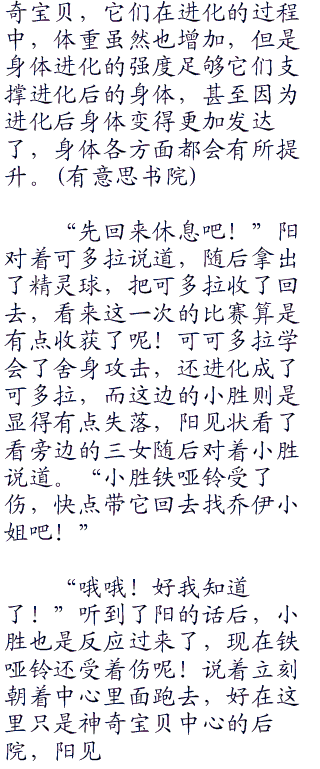 奇宝贝，它们在进化的过程
中，体重虽然也增加，但是
身体进化的强度足够它们支
撑进化后的身体，甚至因为
进化后身体变得更加发达
了，身体各方面都会有所提
升。(有意思书院)
“先回来休息吧！”阳
对着可多拉说道，随后拿出
了精灵球，把可多拉收了回
去，看来这一次的比赛算是
有点收获了呢！可可多拉学
会了舍身攻击，还进化成了
可多拉，而这边的小胜则是
显得有点失落，阳见状看了
看旁边的三女随后对着小胜
说道。“小胜铁哑铃受了
伤，快点带它回去找乔伊小
姐吧！”
“哦哦！好我知道
了！”听到了阳的话后，小
胜也是反应过来了，现在铁
哑铃还受着伤呢！说着立刻
朝着中心里面跑去，好在这
里只是神奇宝贝中心的后
院，阳见